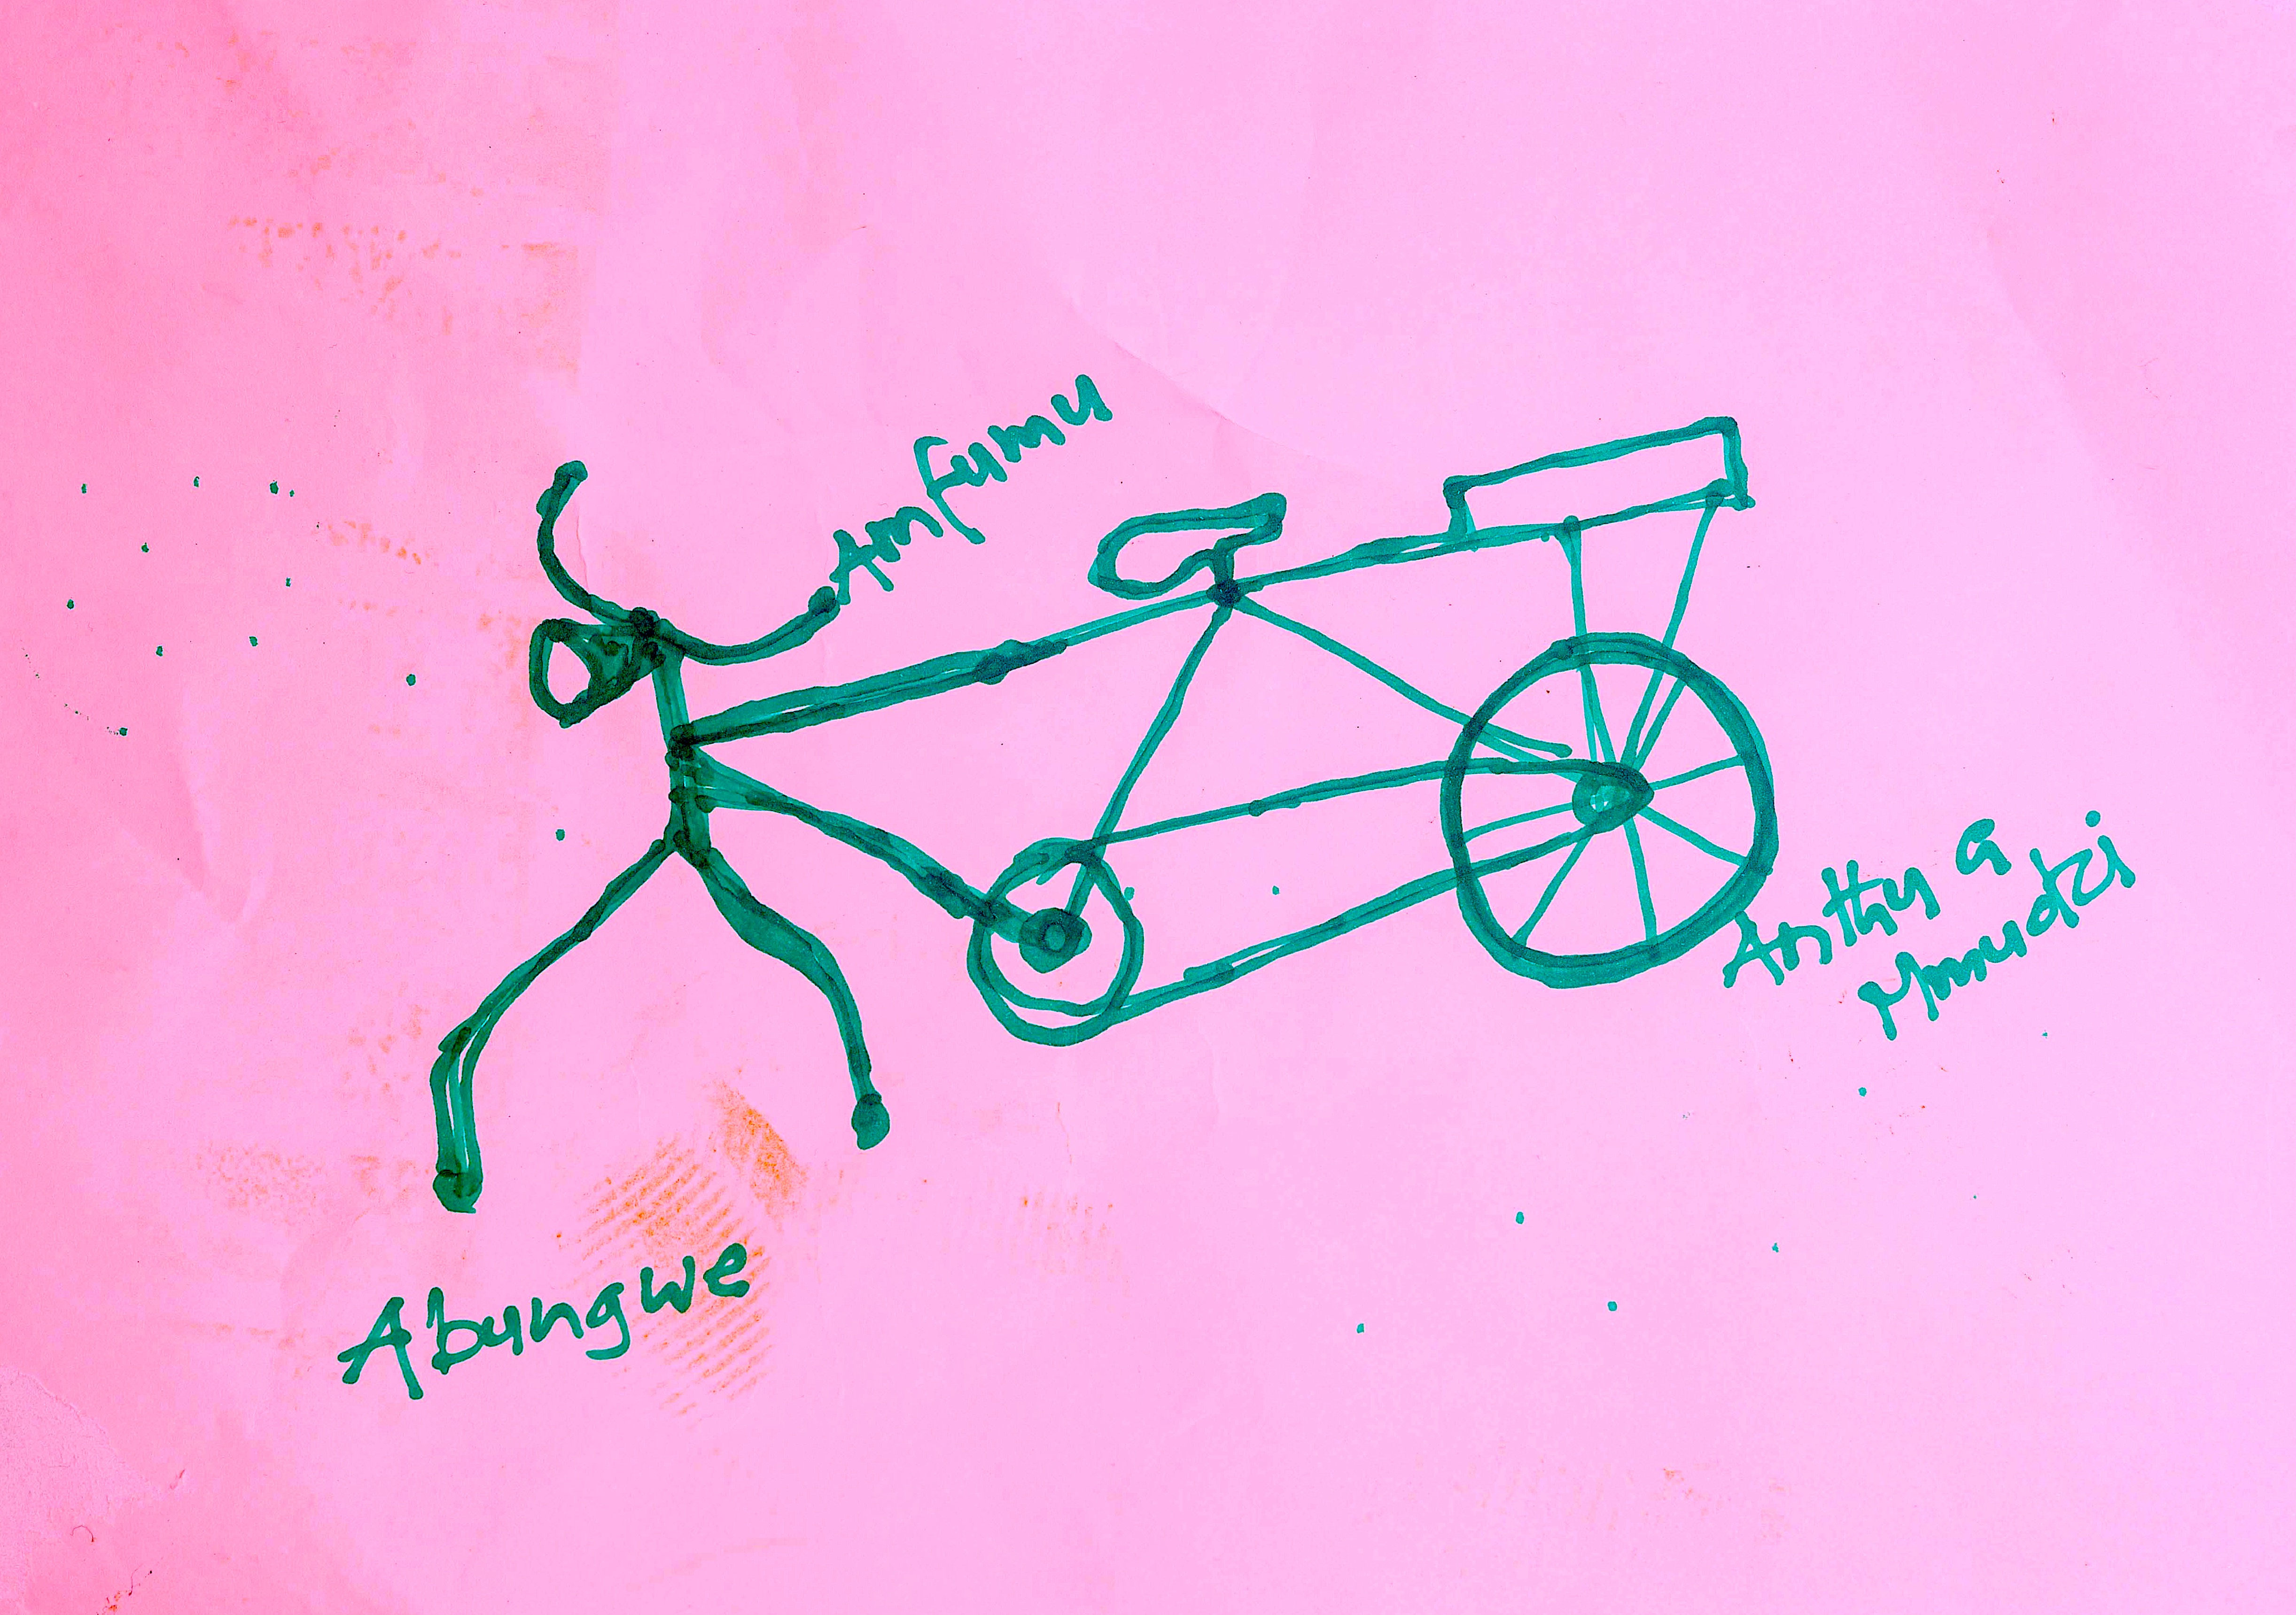 Amfumu
Anthu a
Mmudzi
Abungwe